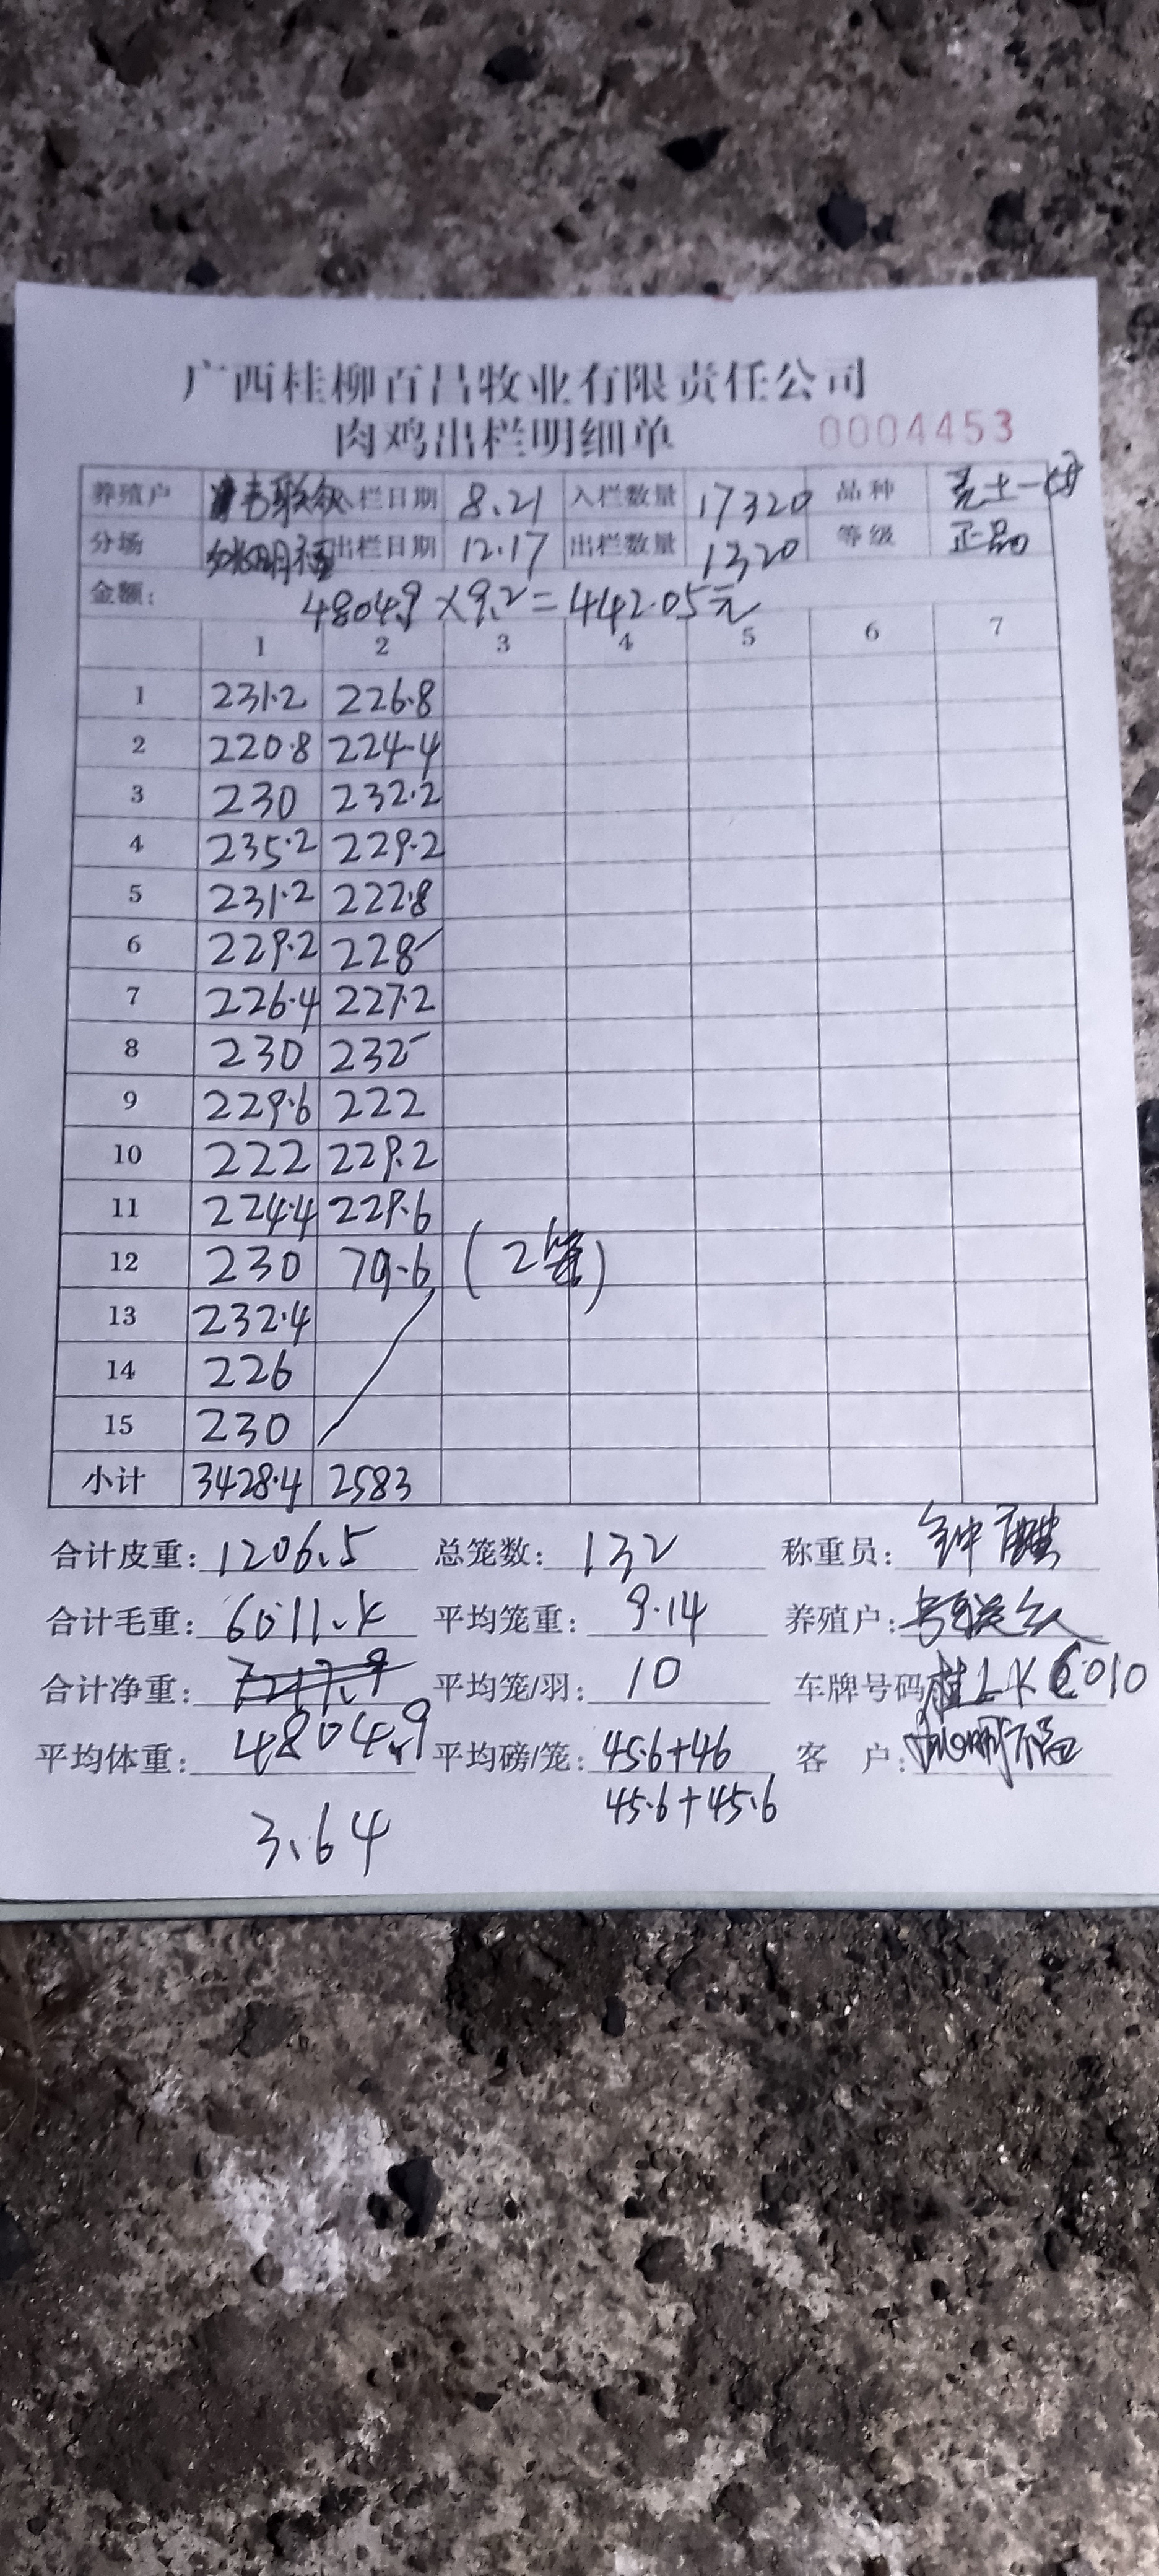 广西桂柳百昌牧业有限责任公司
肉鸡出栏明细单 0004453
养殖户 韦联众 入栏日期 8.21 入栏数量 17320 品种
分场 出栏日期 12.17 出栏数量 1320 等级 正品
金额: 4804.9×9.2=442.05元
1 2 3 4 5 6 7
1 231.2 226.8
2 220.8 224.4
3 230 232.2
4 235.2 229.2
5 231.2 222.8
6 229.2 228
7 226.4 227.2
8 230 232
9 229.6 222
10 222 229.2
11 224.4 229.6
12 230 79.6 (2笼)
13 232.4
14 226
15 230
小计 3428.4 2583
合计皮重: 1206.5 总笼数: 132 称重员: 钟
合计毛重: 6011.4 平均笼重: 9.14 养殖户:
合计净重: 7217.9 平均笼/羽: 10 车牌号码 桂LK6010
平均体重: 4804.9 平均磅/笼: 45.6+46 客 户:
45.6+45.6
3.64